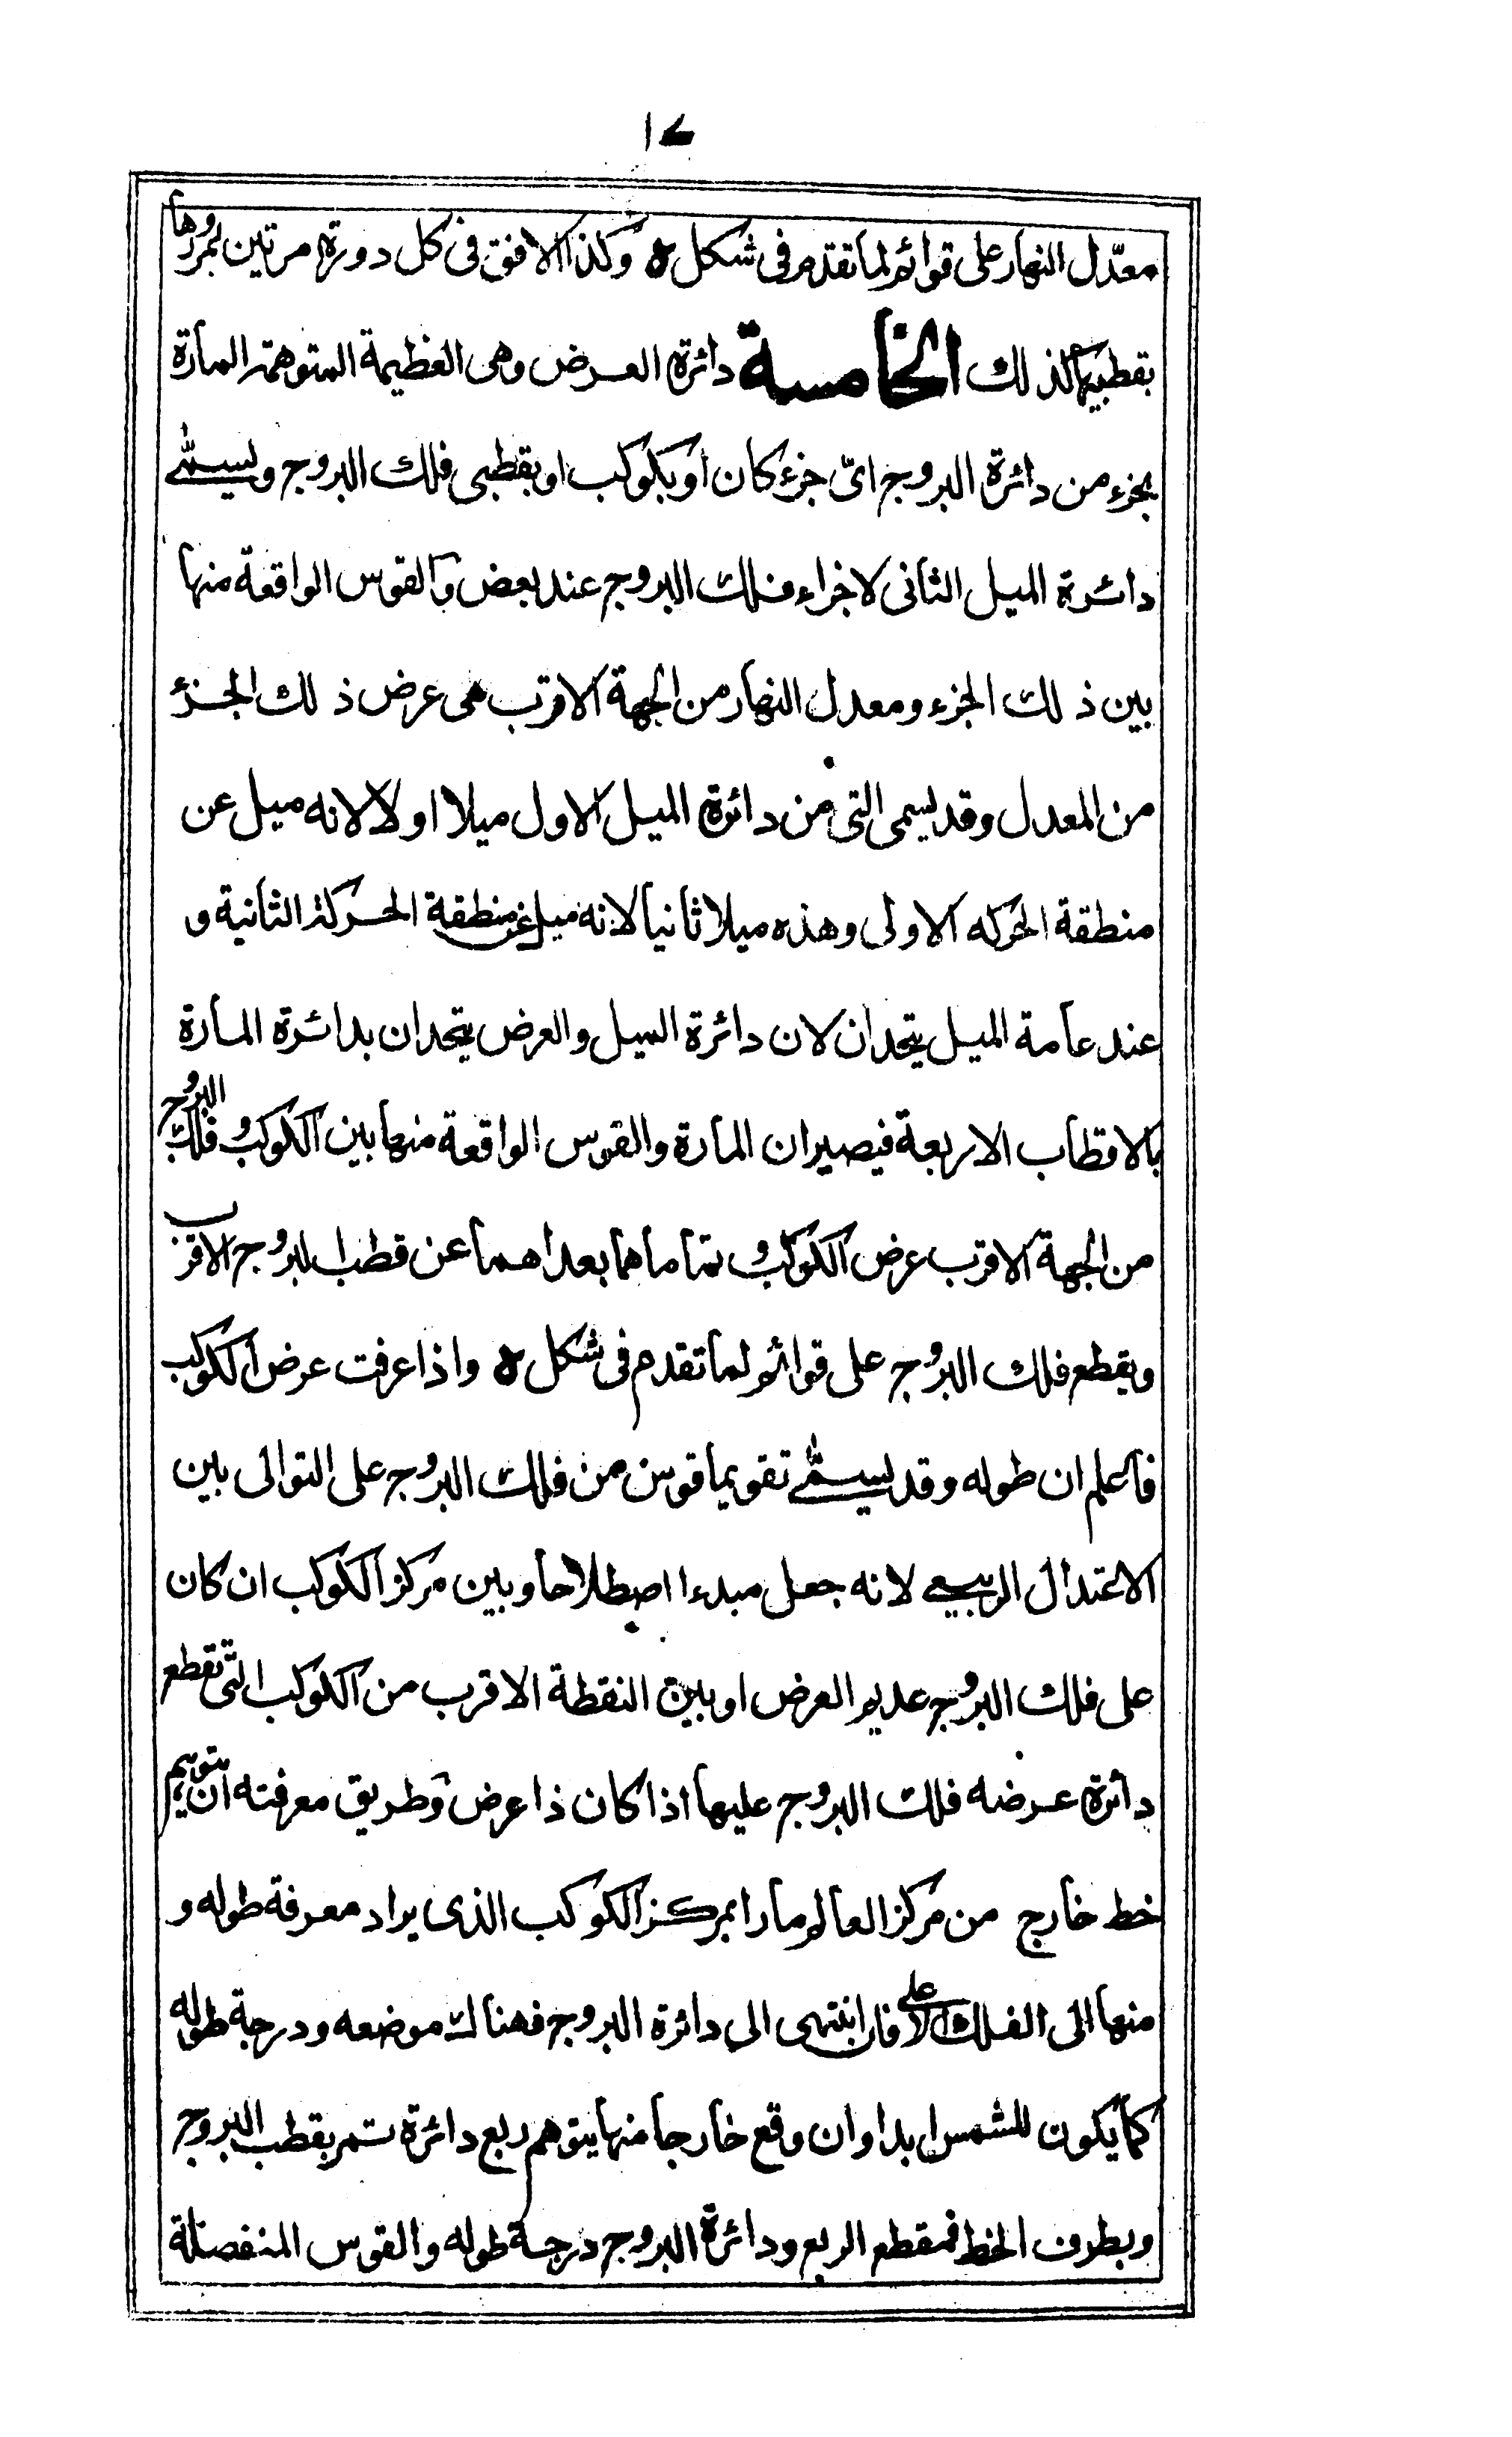 ١٧
معدّل النهار على قوائم لما تقدم فى شكل ٥ وكذا الافق فى كل دورة مرتين لمرورها
بقطبيهما لذلك الخامسة دائرة العرض وهى العظيمة المتوهمة المارة
بجزء من دائرة البروج اىّ جزء كان او بكوكب او بقطبى فلك البروج ويسمّى
دائرة الميل الثانى لاجزاء فلك البروج عند بعض والقوس الواقعة منها
بين ذلك الجزء ومعدل النهار من الجهة الاقرب هى عرض ذلك الجزء
من المعدل وقد يسمى التى من دائرة الميل الاول ميلا اولا لانه ميل عن
منطقة الحركه الاولى وهذه ميلا ثانيا لانه ميل عن منطقة الحركة الثانية و
عند عامة الميل يتحدان لان دائرة الميل والعرض يتحدان بدائرة المارة
بالاقطاب الاربعة فيصيران المارة والقوس الواقعة منها بين الكوكب وفلك البروج
من الجهة الاقرب عرض الكوكب وتماما هما بعداهما عن قطب البروج الاقرب
ويقطع فلك البروج على قوائم لما تقدم فى شكل ٥ واذا عرفت عرض الكوكب
فاعلم ان طوله وقد يسمّى تقويما قوس من فلك البروج على التوالى بين
الاعتدال الربيعى لانه جعل مبدءا اصطلاحا وبين مركز الكوكب ان كان
على فلك البروج عديم العرض او بين النقطة الاقرب من الكوكب التى تقطع
دائرة عرضه فلك البروج عليها اذا كان ذا عرض وطريق معرفته ان يتوهم
خط خارج من مركز العالم مارا بمركز الكوكب الذى يراد معرفة طوله و
منها الى الفلك الاعلى فان انتهى الى دائرة البروج فهناك موضعه ودرجة طوله
كما يكون للشمس ابدا وان وقع خارجا منها يتوهم ربع دائرة تمر بقطب البروج
وبطرف الخط فمقطع الربع ودائرة البروج درجة طوله والقوس المنفصلة